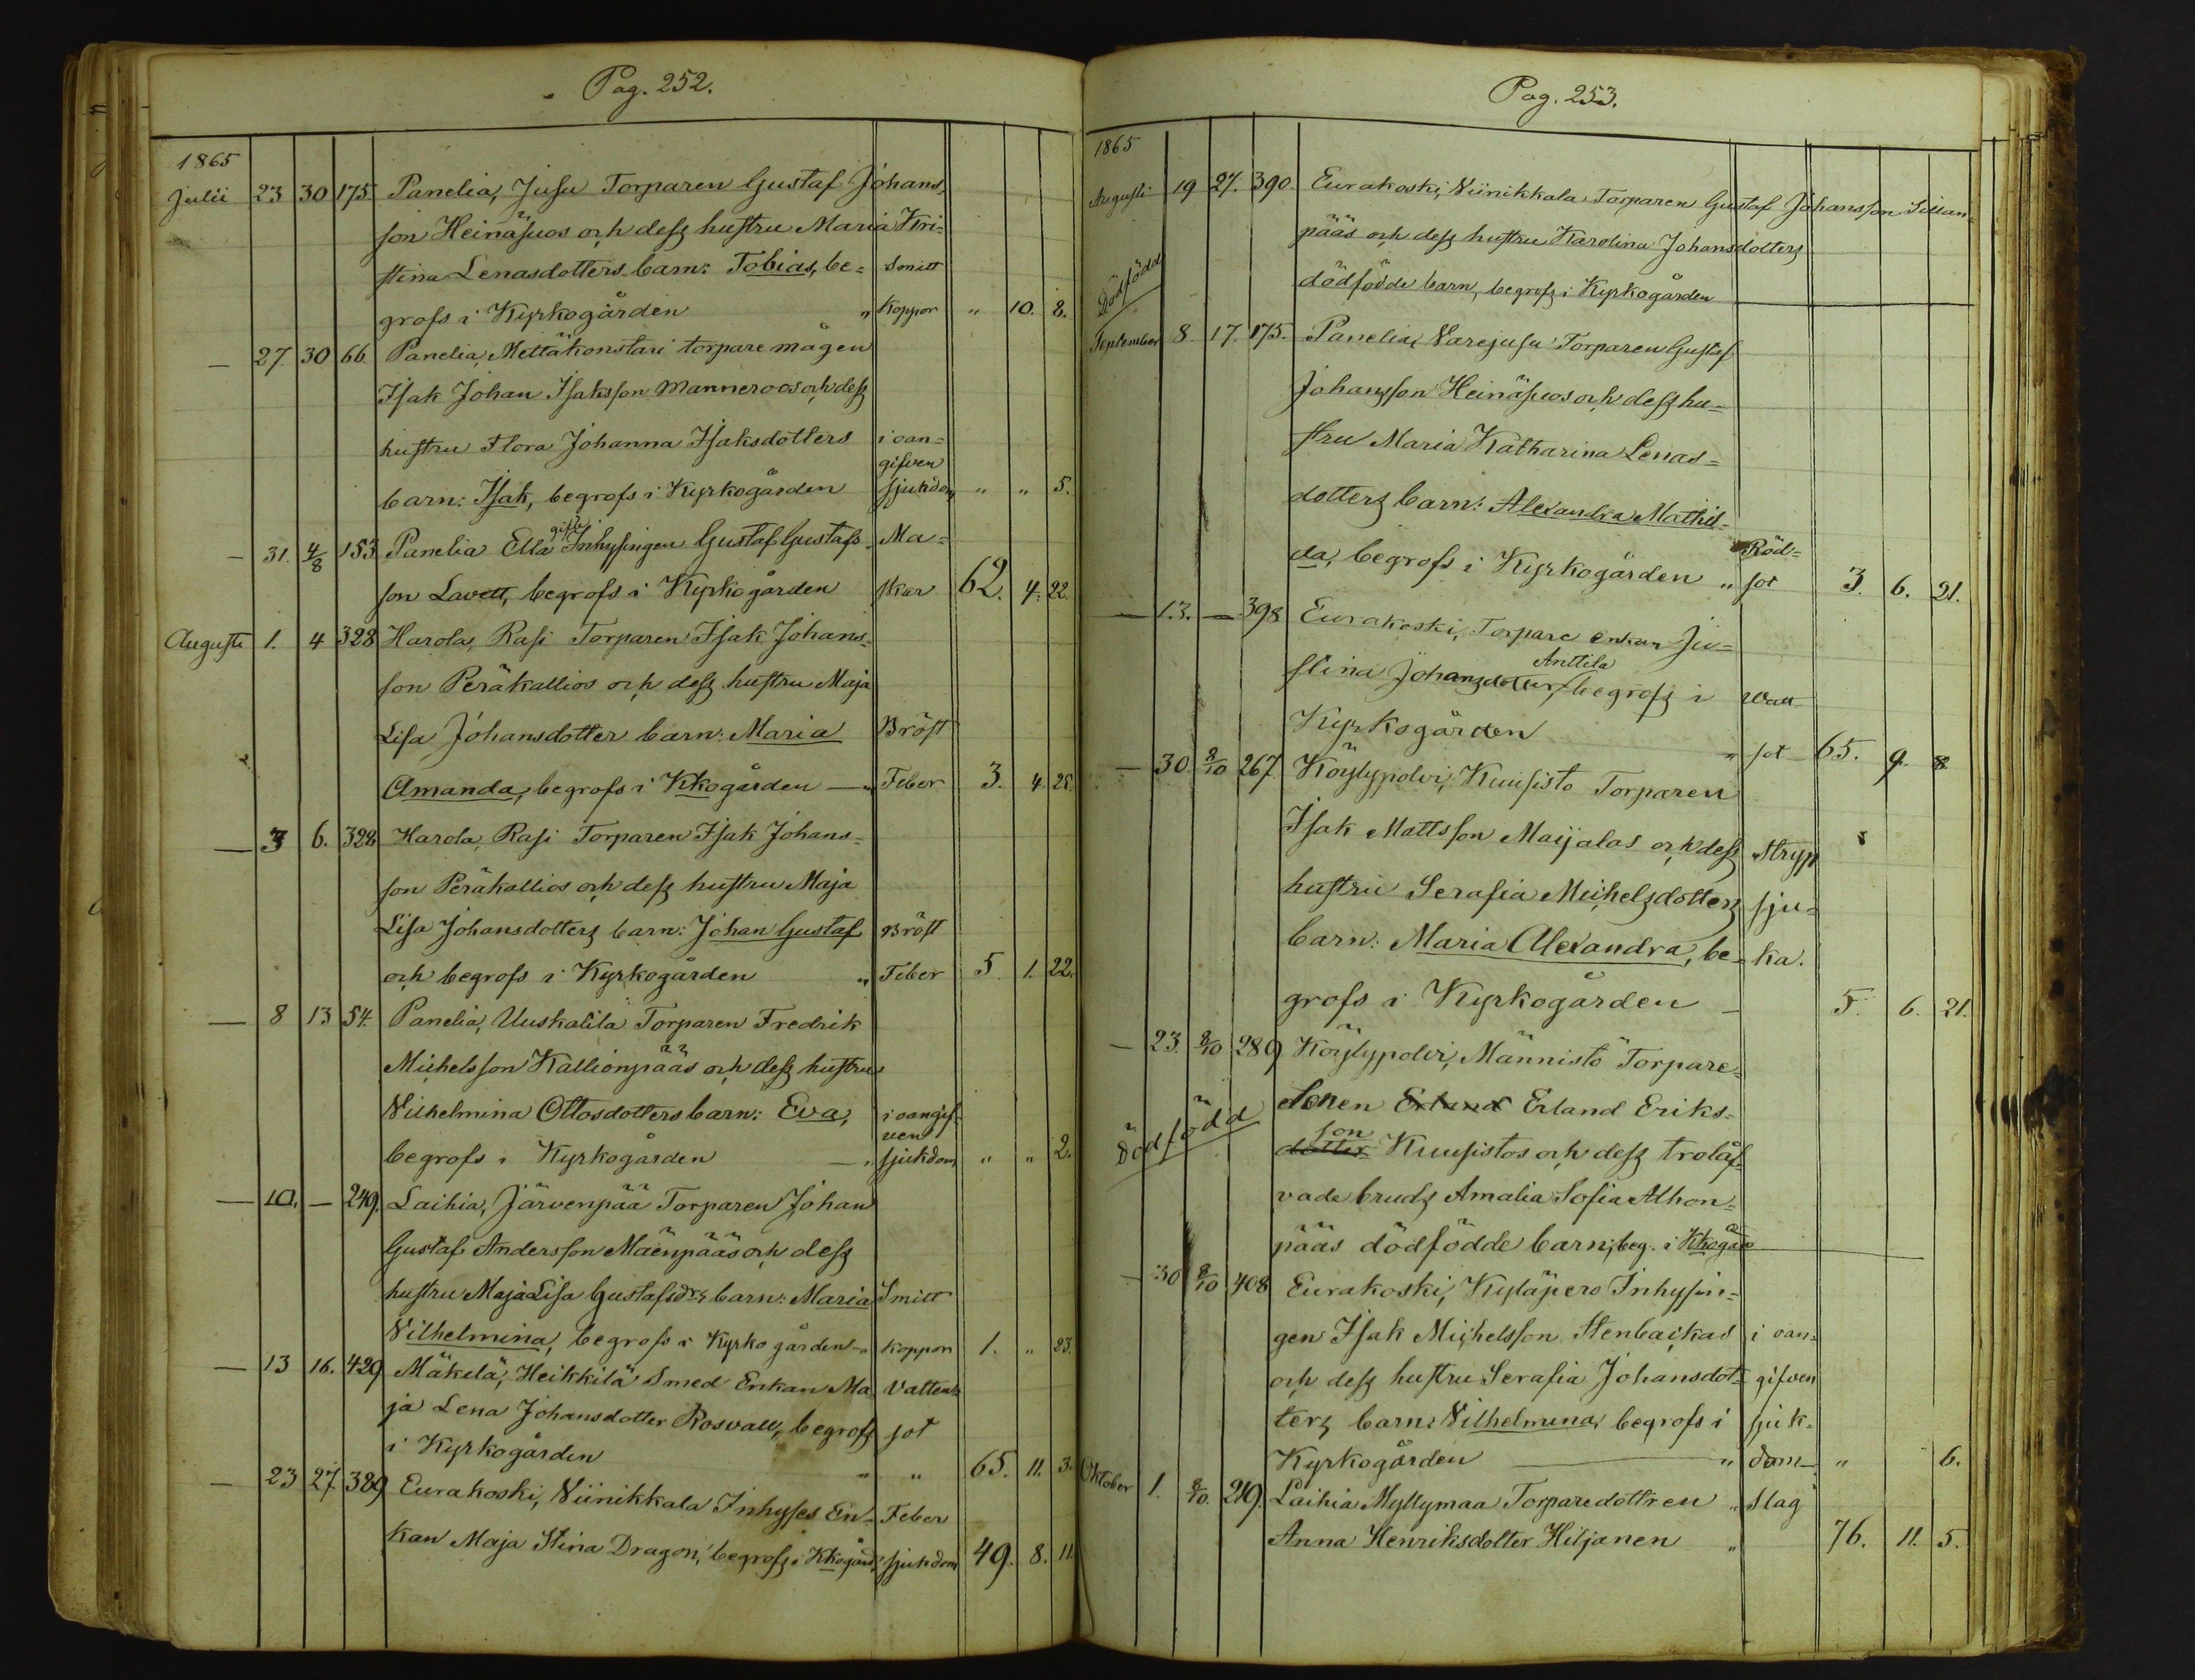 Pag. 252.
1865
Julii 23 30 175. Panelia, Jusu Torparen Gustaf Johans-
son Heinäsuos och dess hustru Maria Kri-
stina Lenasdotters barn: Tobias, be- Smitt
grofs i Kyrkogården " Koppor " 10. 2.
— 27. 30 66. Panelia, Mettäkonstari torpare mågen
Isak Johan Isaksson Manneroos och dess
hustru Flora Johanna Isaksdotters i oan-
gifven
barn: Isak, begrofs i Kyrkogården sjukdom " " 5.
gifte
— 31. 4/8 153 Panelia Ella Inhysingen Gustaf Gustafs- Ma-
son Lavett, begrofs i Kyrkogården skar 62. 4. 22.
Augusti 1. 4 328 Harola, Rasi Torparen Isak Johans-
son Peräkallios och dess hustru Maja
Lisa Johansdotter barn: Maria Bröst
Amanda, begrofs i Kkogården — " Feber 3. 4. 25.
— 3 6. 328 Harola, Rasi Torparen Isak Johans-
son Peräkallios och dess hustru Maja
Lisa Johansdotters barn: Johan Gustaf Bröst
och begrofs i Kyrkogården " Feber 5. 1. 22.
— 8 13 54. Panelia, Uuskalila Torparen Fredrik
Michelsson Kallionpääs och dess hustru
Vilhelmina Ottosdotters barn: Eva, i oangif-
ven
begrofs i Kyrkogården — " sjukdom " " 2.
— 10. — 249. Laihia, Järvenpää Torparen Johan
Gustaf Andersson Mäenpääs och dess
hustru Maja Lisa Gustafsdrs barn: Maria Smitt
Vilhelmina, begrofs i Kyrkogården — " koppor 1. " 23.
— 13 16. 429 Mäkelä, Heikkilä Smed Enkan Ma- Vatten
ja Lena Johansdotter Rosvall, begrofs sot
i Kyrkogården " " 65. 11. 3.
— 23 27. 389 Eurakoski, Viinikkala Inhyses En- Feber
kan Maja Stina Dragon, begrofs i Kkogård. sjukdom 49. 8. 11.
Pag. 253.
1865
Augusti 19 27. 390. Eurakoski, Viinikkala Torparen Gustaf Johansson Sillan-
pääs och dess hustru Karolina Johansdotters
Dödfödd dödfödde barn, begrofs i Kyrkogården
September 8. 17. 175. Panelia, Varejusu Torparen Gustaf
Johansson Heinäsuos och dess hu-
stru Maria Katharina Lenas-
dotters barn: Alexandra Mathil-
da, begrofs i Kyrkogården " Röd-
sot 3. 6. 21.
— 13. — 398 Eurakoski, Torpare enkan Ju-
Anttila
stina Johansdotter, begrofs i Watt-
Kyrkogården " sot 65. 9. 8.
— 30. 8/10 267. Köylypolvi, Kuusisto Torparen
Isak Mattsson Maijalas och dess Stryp
hustru Serafia Michelsdotters sju-
barn: Maria Alexandra, be- ka.
grofs i Kyrkogården — 5. 6. 21.
— 23. 8/10 289. Köylypolvi, Männistö Torpare-
Dödfödd sonen Erland Erland Eriks-
son
dotter Kuusistos och dess trolåf-
vade bruds Amalia Sofia Alhon-
pääs dödfödde barn, beg. i Kkogår.
— 30 8/10 408 Eurakoski, Kyläpero Inhysin-
gen Isak Michelsson Stenbackas i oan-
och dess hustru Serafia Johansdot- gifven
ters barn: Vilhelmina, begrofs i sjuk-
Kyrkogården — " dom " 6.
Oktober 1. 8/10. 219. Laihia Myllymaa Torparedottren " Slag
Anna Henriksdotter Hiljanen " 76. 11. 5.